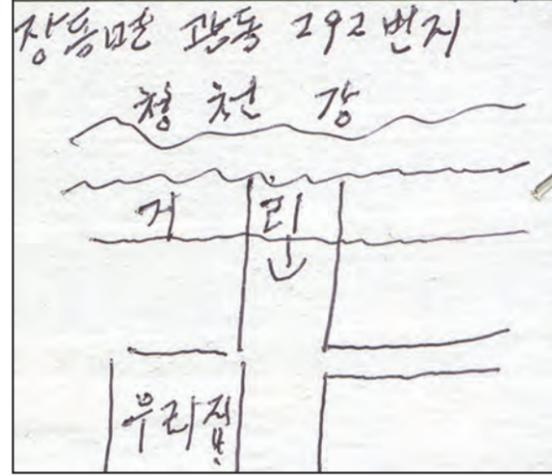 장등면 관동 292번지
청천강
거리
우리집